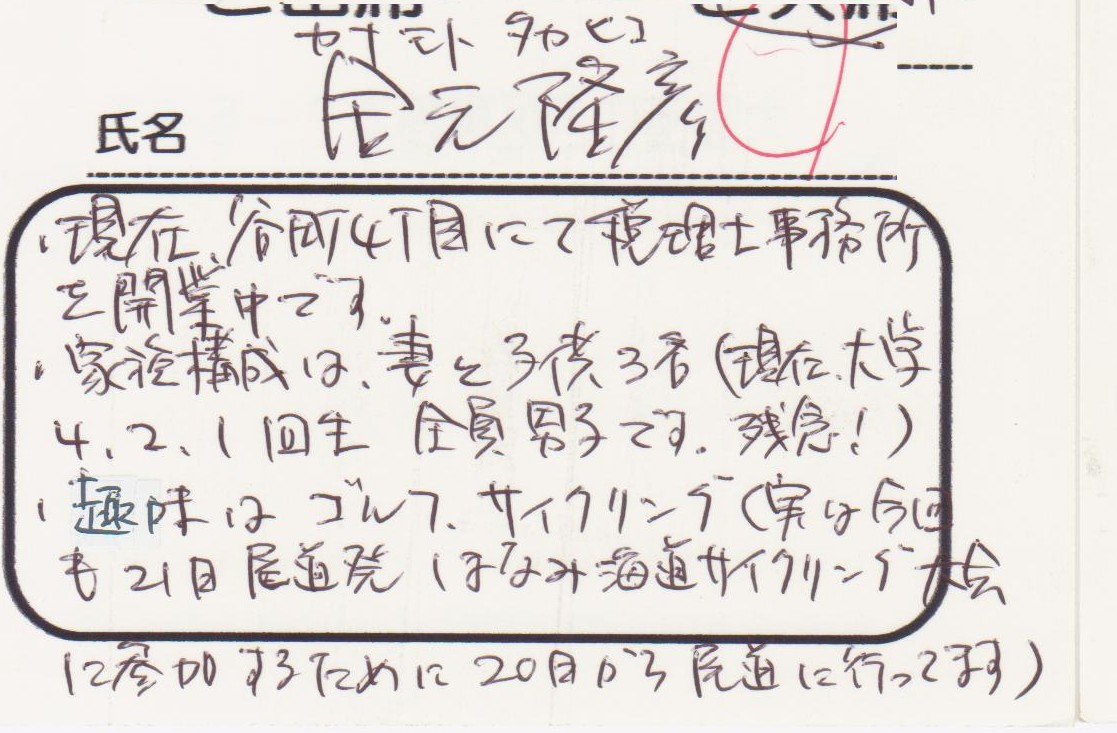 ご出席
ご欠席
カナモト タカヒコ
氏名 金元隆彦
・現在、谷町4丁目にて税理士事務所
を開業中です。
・家族構成は、妻と子供3名(現在、大学
4、2、1回生 全員男子です。残念!)
・趣味はゴルフ、サイクリング(実は今回
も21日尾道発しまなみ海道サイクリング大会
に参加するために20日から尾道に行ってます)